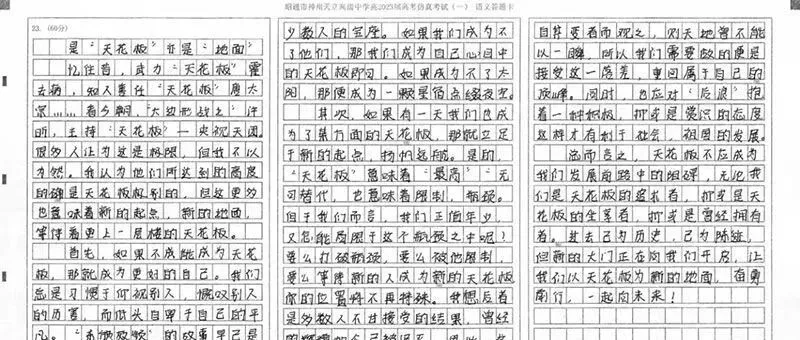 昭通市神州天立高级中学高2023级高考仿真考试（一） 语文答题卡
23. （60分）
是“天花板”亦是“地面”
忆往昔，武力“天花板”霍
去病，知人善任“天花板”唐太
宗……看今朝，“大边形战士”许
昕，主持“天花板”一央视天团
很多人认为这是极限，但我不以
为然。我认为他们所达到的高度
的确是天花板级别的，但这更多
也意味着新的起点，新的地面，
等待着更上一层楼的天花板。
首先，如果不成能成为天花
板，那就成为更好的自己。我们
总是习惯于仰视别人，慨叹别人
的厉害，而低头自卑于自己的平
凡。 的故事早已是
少数人的宝座。如果我们成为不
了他们，那我们成为自己心目中
的天花板即可。如果成为不了太
阳，那便成为一颗星留点缀夜空。
其次，如果有一天我们已成
为了某方面的天花板，那就立足
于新的起点，扬帆远航。是的，
“天花板”意味着“最高”“无
可替代，也意味着限制，瓶颈。
但于我们而言，我们正值年少，
又怎能局限于这个瓶颈之中呢？
要么打破瓶颈，要么被他限制，
要么等待新的人成为新的天花板
你的位置将不再特殊。我想后者
是多数人不甘接受的结果，曾经
自其变者而观之，则天地曾不能
以一瞬，所以我们需要做的便是
接受这一落差，重回属于自己的
顶峰。同时，也应对“后浪”抱
着一种积极，抑或是赏识的态度
这样才有利于社会，祖国的发展。
总而言之，天花板不应成为
我们发展前路中的阻碍，无论我
们是天花板的追求者，抑或是天
花板的坐享者，抑或是曾经拥有
者。过去已为历史，已为陈迹，
但新的大门正在向我们开启，让
我们以天花板为新的地面，奋勇
前行，一起向未来！